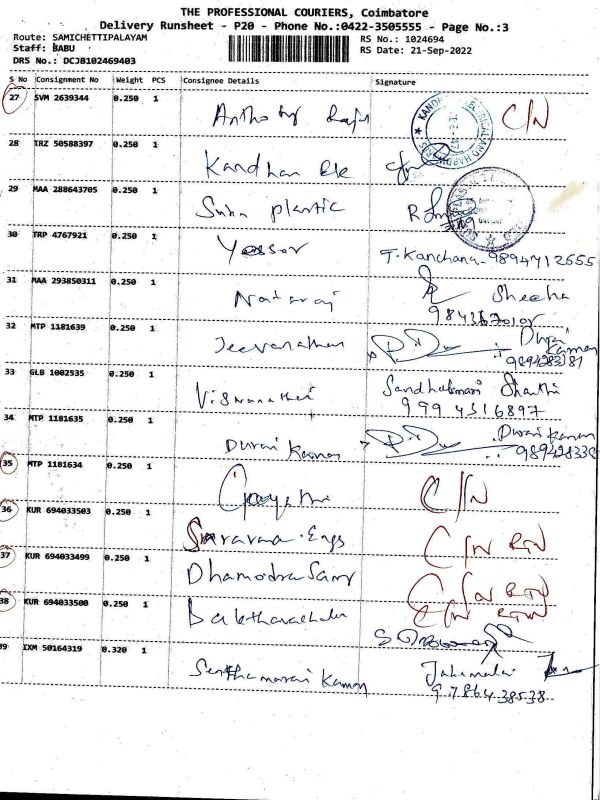 THE PROFESSIONAL COURIERS, Coimbatore
Delivery Runsheet - P20 - Phone No.:0422-3505555 - Page No.:3
Route: SAMICHETTIPALAYAM RS No.: 1024694
Staff: BABU RS Date: 21-Sep-2022
DRS No.: DCJB102469403
S No Consignment No Weight PCS Consignee Details Signature
27 SVM 2639344 0.250 1 C/N
28 TRZ 50588397 0.250 1 Kandhan
29 MAA 288643705 0.250 1 Suba plastic
30 TRP 4767921 0.250 1 T. Kanchana - 9894712555
31 MAA 293850311 0.250 1 Nataraj Sheeba
32 MTP 1181639 0.250 1 Jeevarathan Durai Kannan
33 GLB 1002535 0.250 1 Viswanathan Shanthi
999 4316897
34 MTP 1181635 0.250 1 Durai Kannan Durai Kannan
35 MTP 1181634 0.250 1 Gayathri C/N
36 KUR 694033503 0.250 1 Saravana Engg C/N RTN
37 KUR 694033499 0.250 1 Dhamodra Samy C/N RTN
38 KUR 694033500 0.250 1 C/N RTN
39 IXM 50164319 0.320 1 Senthamarai Kannan
97864 38538